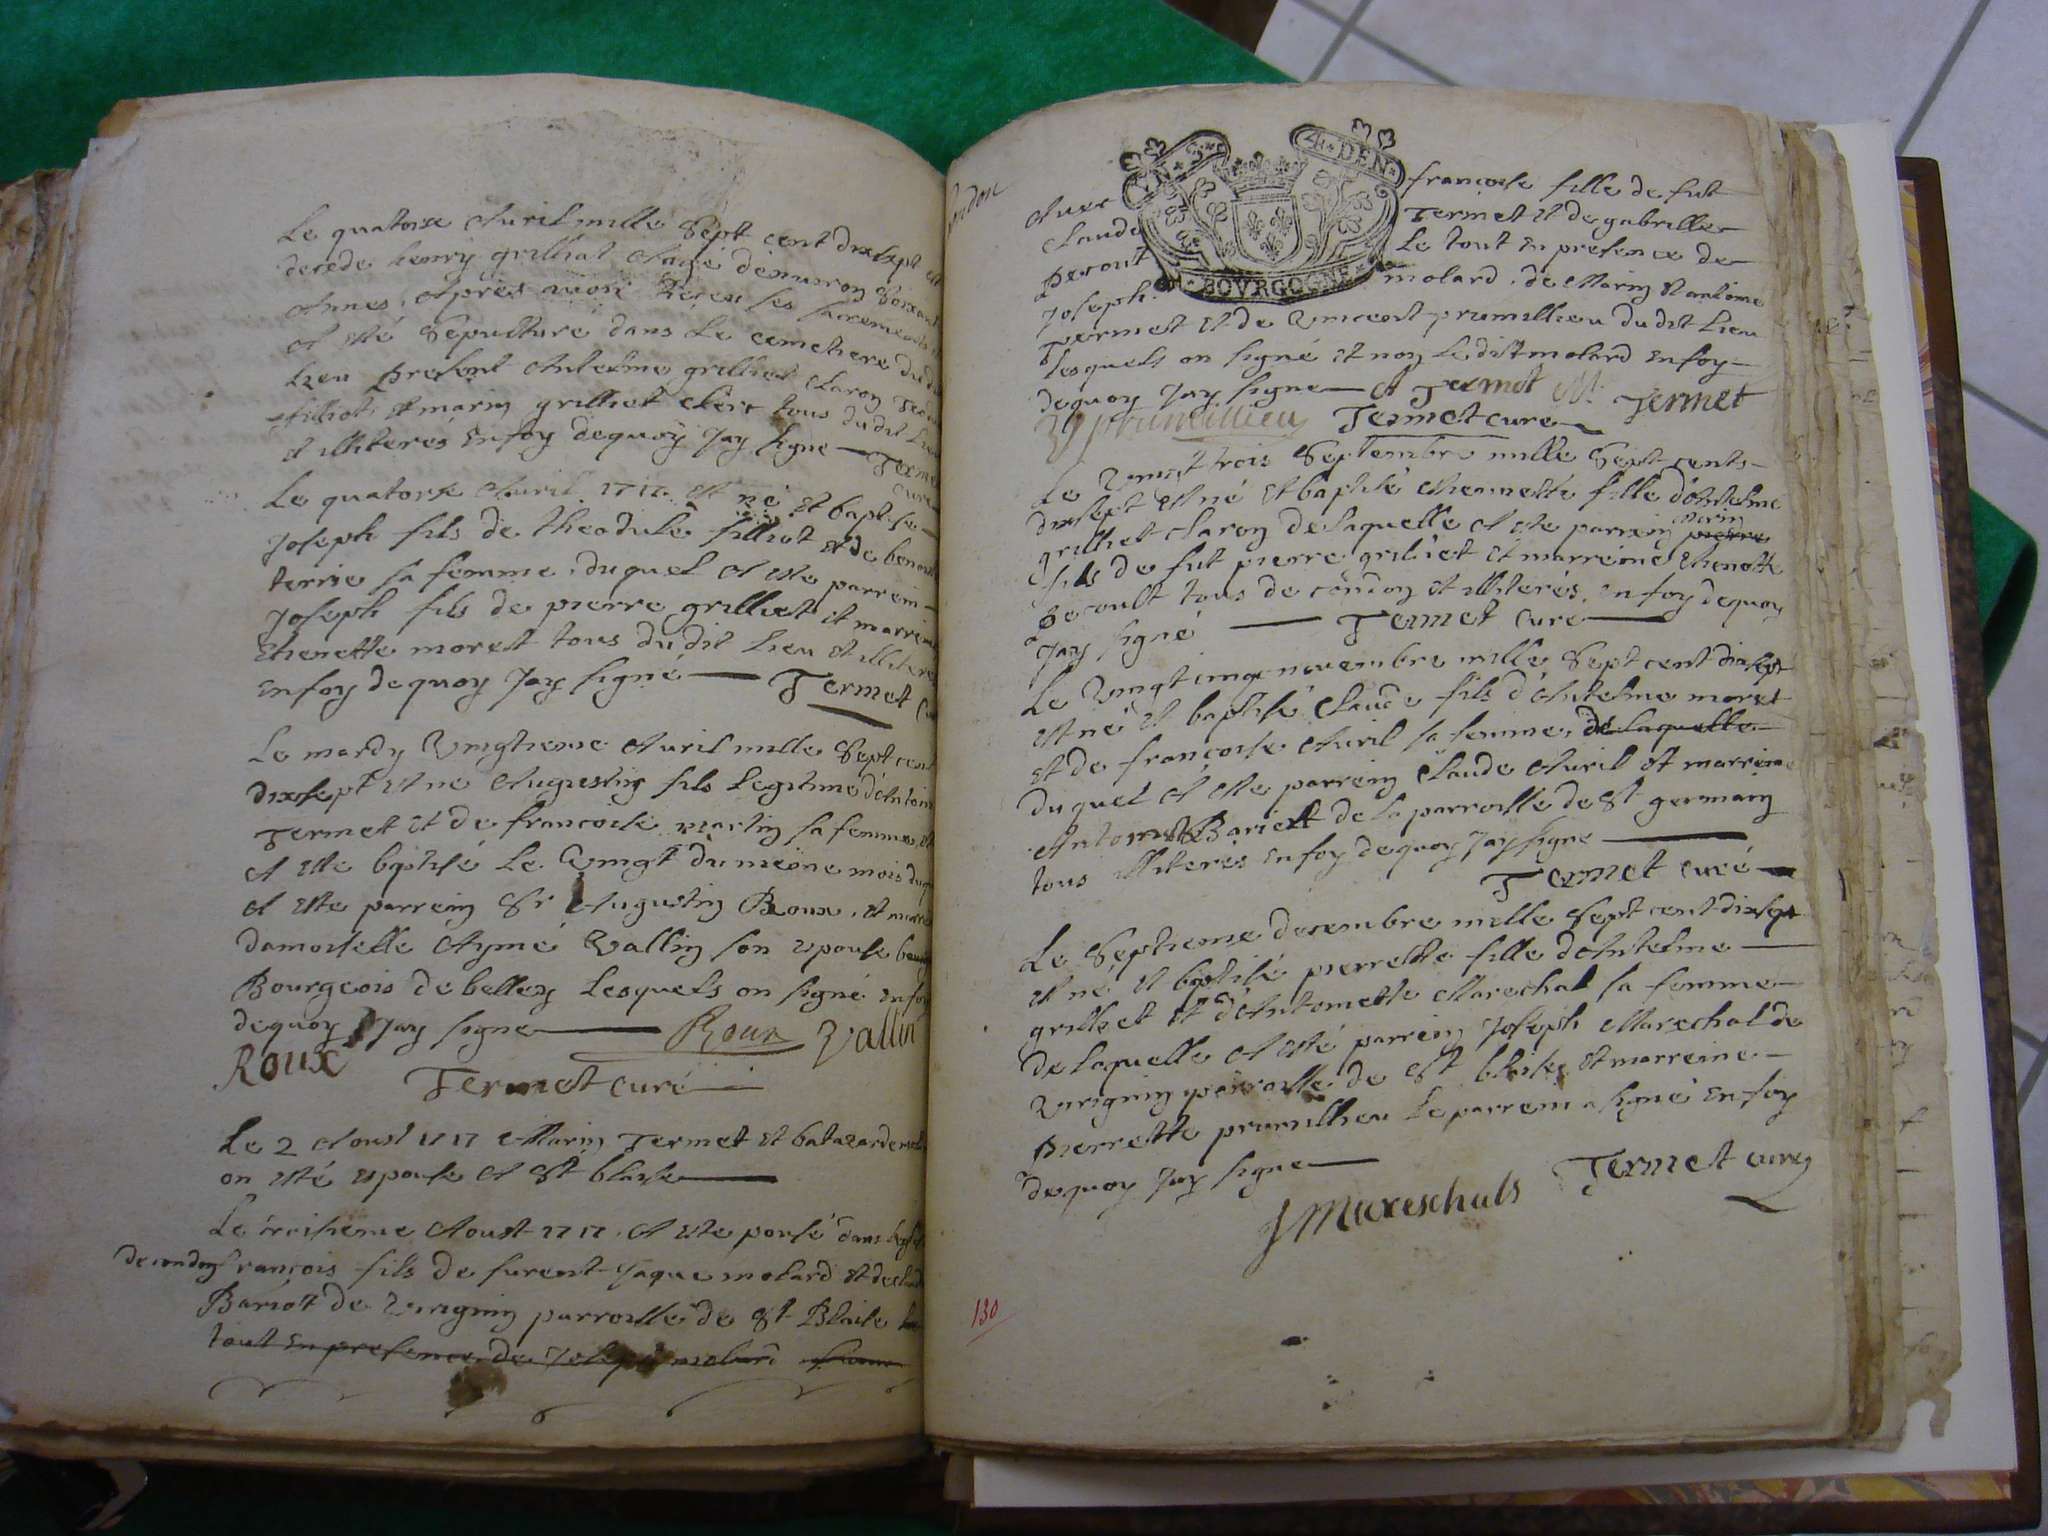 Le quatorse Avril mille Sept cent dixsept est
decede henry grilliat Aagé denviron Soixante
Annes, Apres avoir Receu ses sacrements
A esté Sepulturé dans Le cemetiere du dit
Lieu present Antelme grilliet claron
filliot, et marin grilliet clerc tous du dit Lieu
et illiterés En foy dequoy Jay signe Termet
curé
Le quatorse Avril 1717 est né et baptise
Joseph fils de theodule filliot et de
terrie sa femme, duquel A este parrein
Joseph fils de pierre grilliet et marreine
Etienette moret tous du dit Lieu et illiteres
En foy de quoy Jay signé Termet
Le mardy Vingtieme Avril mille Sept cent
dixsept est ne Augustin fils Legitime d'Antoine
Termet et de francoise martin sa femme, et
A este baptisé Le Vingt du meme mois duquel
A este parrein Sr Augustin Roux, et marreine
damoiselle Aymé Vallin son epouse
Bourgeois de belley Lesquels on signé En foy
dequoy Jay signe Roux Vallin
Roux
Termet curé
Le 2 Aoust 1717 Marin Termet et
on esté epousé A St blaise
Le troisieme Aoust 1717. A este porté dans
de condon francois fils de furent Jaque molard et de
Bariot de Virignin parroisse de St Blaise
tout En presence de Joseph molard
condon
Avec
Claude
Joseph
4. DEN.
BOVRGOGNE
francoise fille de fut
Termet et de gabrielle
Le tout En presence de
molard, de Marin et antoine
Termet et de Vincent prumillieu du dit Lieu
Lesquels on signé et non Le dit molard En foy
dequoy Jay signe A Termet M. Termet
V prumillieu Termet curé
Le Vingt trois Septembre mille Sept cents
dixsept est né et baptisé etiennette fille d'Antelme
grilliet claron de laquelle A este parrein marin pierre
fils de fut pierre grilliet et marreine Etienette
tous de condon et illiterés, En foy dequoy
Jay signé Termet curé
Le Vingt cinq novembre mille Sept cent dixsept
est né et baptisé Claude fils d'Antelme moret
Et de francoise Avril sa femme, de laquelle
duquel A este parrein Claude Avril et marreine
Bariett de la parroisse de St germain
tous illiteres En foy dequoy Jay signe
Termet curé
Le Septieme decembre mille Sept cent dixsept
est né et baptisé pierrette fille d'Antelme
grilliet et d'Antoinette Marechal sa femme
de laquelle A esté parrein Joseph Marechal de
Virignin parroisse de St blaise, et marreine
pierrette prumillieu Le parrein a signé En foy
dequoy Jay signe
J Mareschals Termet curé
130